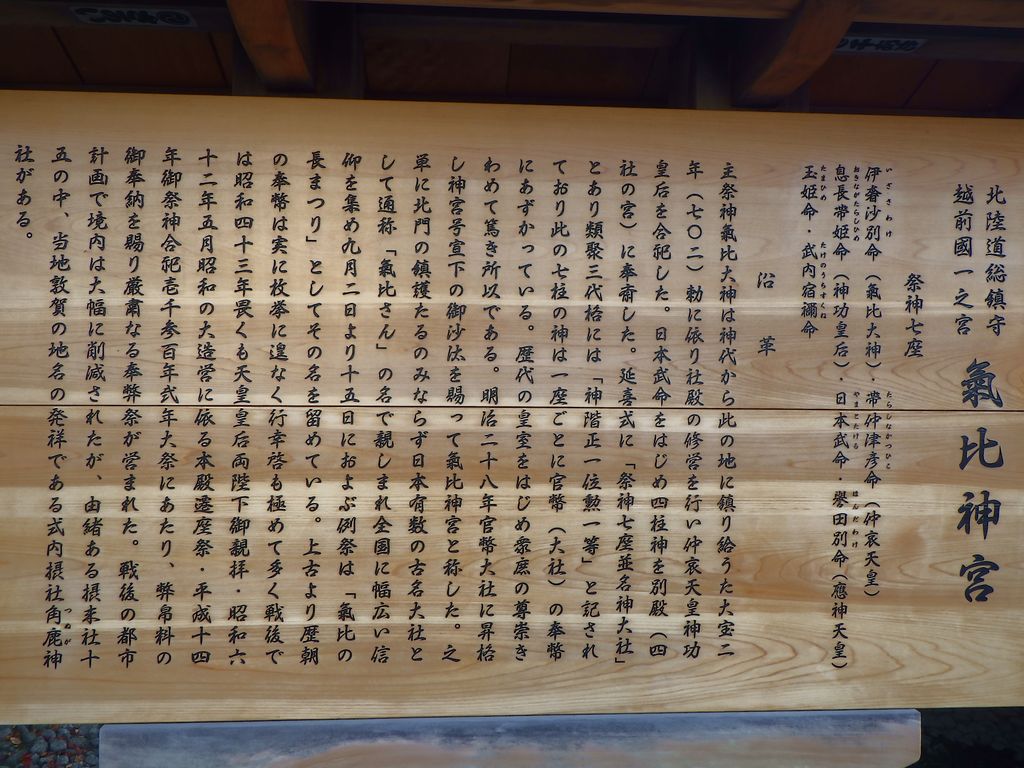 北陸道総鎮守
越前國一之宮
氣比神宮
祭神七座
伊奢沙別命（氣比大神）・帯仲津彦命（仲哀天皇）
息長帯姫命（神功皇后）・日本武命・誉田別命（應神天皇）
玉姫命・武内宿禰命
沿革
主祭神氣比大神は神代から此の地に鎮り給うた大宝二
年（七〇二）勅に依り社殿の修営を行い仲哀天皇神功
皇后を合祀した。日本武命をはじめ四柱神を別殿（四
社の宮）に奉斎した。延喜式に「祭神七座並名神大社」
とあり類聚三代格には「神階正一位勲一等」と記され
ており此の七柱の神は一座ごとに官幣（大社）の奉幣
にあずかっている。歴代の皇室をはじめ衆庶の尊崇き
わめて篤き所以である。明治二十八年官幣大社に昇格
し神宮号宣下の御沙汰を賜って氣比神宮と称した。之
単に北門の鎮護たるのみならず日本有数の古名大社と
して通称「氣比さん」の名で親しまれ全国に幅広い信
仰を集め九月二日より十五日におよぶ例祭は「氣比の
長まつり」としてその名を留めている。上古より歴朝
の奉幣は実に枚挙に遑なく行幸啓も極めて多く戦後で
は昭和四十三年畏くも天皇皇后両陛下御親拝・昭和六
十二年五月昭和の大造営に依る本殿遷座祭・平成十四
年御祭神合祀壱千参百年式年大祭にあたり、幣帛料の
御奉納を賜り厳粛なる奉幣祭が営まれた。戦後の都市
計画で境内は大幅に削減されたが、由緒ある摂末社十
五の中、当地敦賀の地名の発祥である式内摂社角鹿神
社がある。
いざさわけ
たらしなかつひこ
おきながたらしひめ
やまとたける
ほんだわけ
たまひめ
たけのうちすくね
つぬが